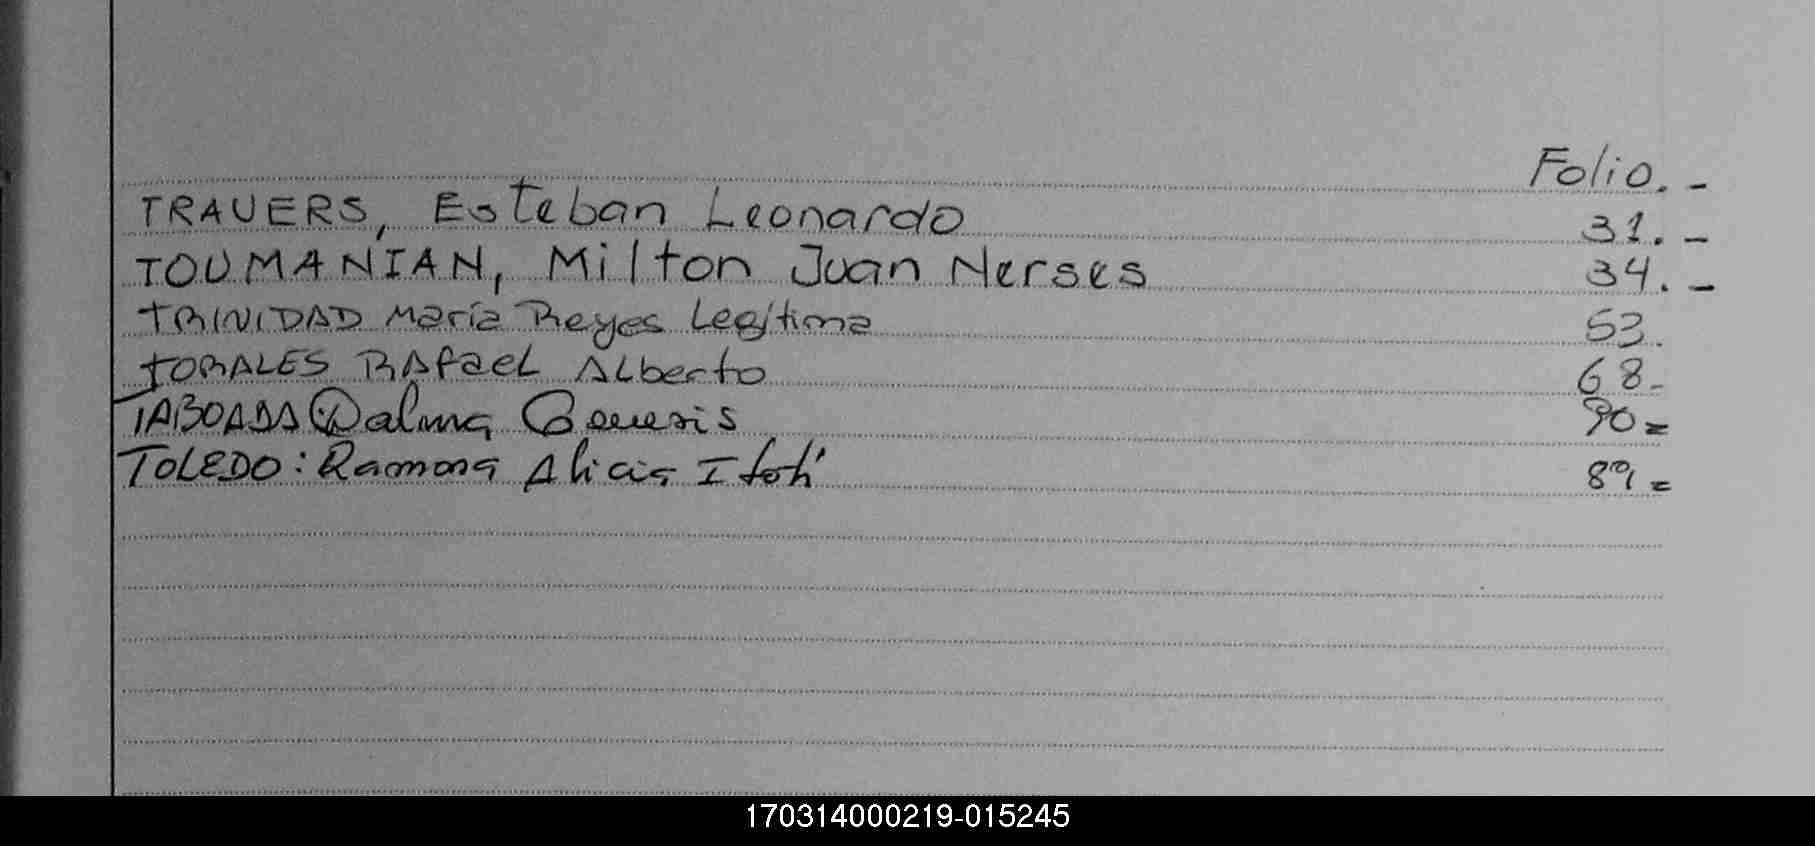 Folio. -
TRAVERS, Esteban Leonardo 31. -
TOUMANIAN, Milton Juan Nerses 34. -
TRINIDAD Maria Reyes Legitima 53.
TORALES RAfael Alberto 68-
TABOADA Dalma Genesis 90=
TOLEDO: Ramona Alicia =
170314000219-015245